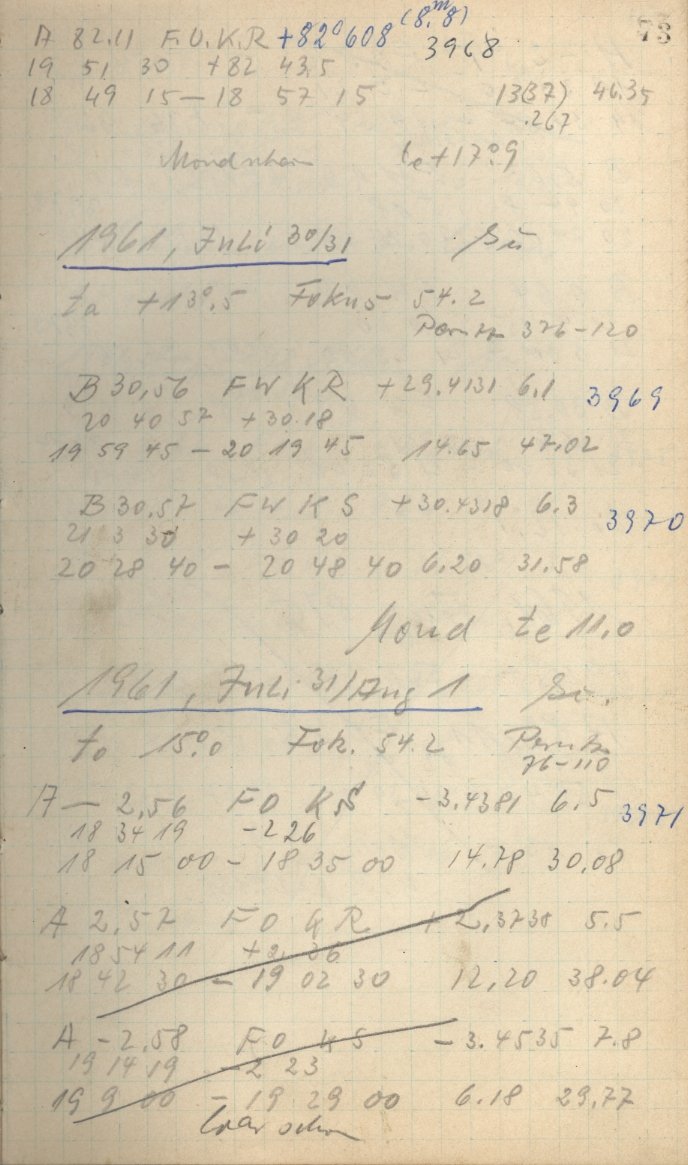 73
A 82.11 F.O.K.R +82°608 (8.ᵐ8)
3968
19 51 30 +82 43.5
18 49 15 – 18 57 15 13(37) 46.35
.267
Mondschein te +17°.9
1961, Juli 30/31 Sü
ta +13°.5 Fokus 54.2
Perutz 376-120
B 30,56 FW KR +29.4131 6.1 3969
20 40 57 +30.18
19 59 45 – 20 19 45 14.65 47.02
B 30,57 FW KS +30.4318 6.3 3970
21 3 30 +30 20
20 28 40 – 20 48 40 6.20 31.58
Mond te 11.0
1961, Juli 31/Aug 1 Sü.
ta 15°.0 Fok. 54.2 Perutz
76-110
A – 2,56 FO KS -3.4381 6.5 3971
18 34 19 -2 26
18 15 00 – 18 35 00 14.78 30.08
A 2,57 FO KR +2,3738 5.5
18 54 11 +2. 36
18 42 30 – 19 02 30 12,20 38.04
A -2.58 FO KS -3.4535 7.8
19 14 19 -2 23
19 9 00 – 19 29 00 6.18 29,77
war schon